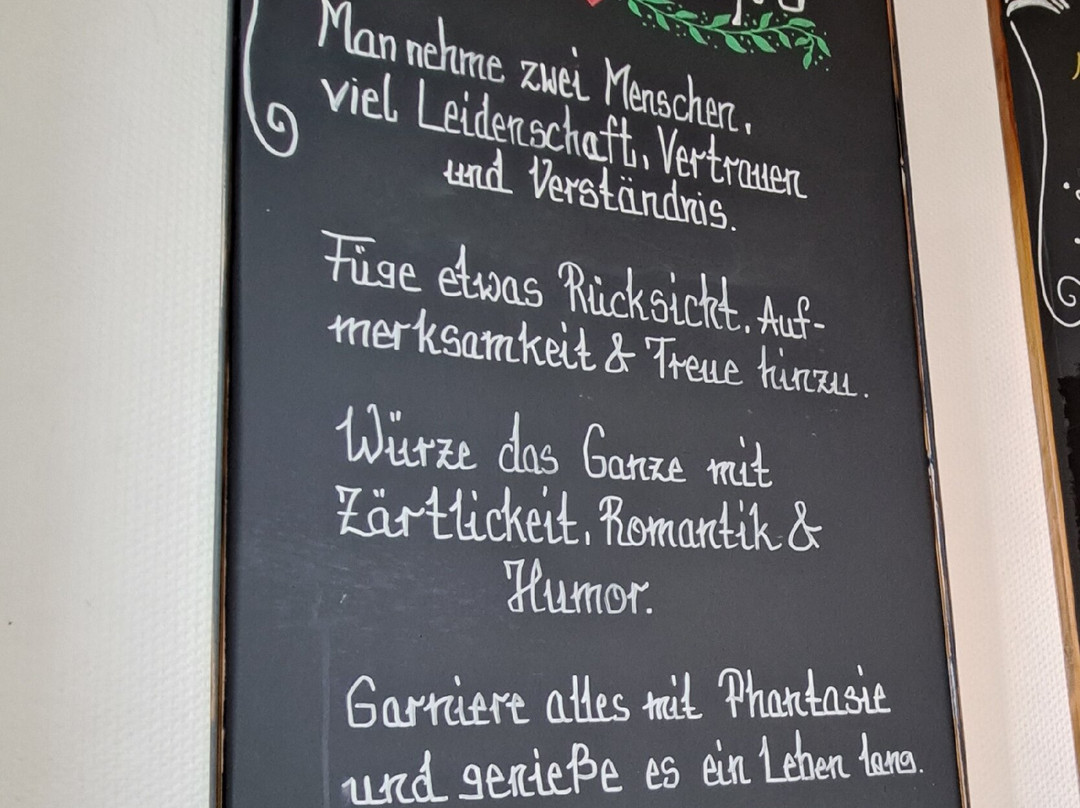 Man nehme zwei Menschen,
viel Leidenschaft, Vertrauen
und Verständnis.
Füge etwas Rücksicht, Auf-
merksamkeit & Treue hinzu.
Würze das Ganze mit
Zärtlickeit, Romantik &
Humor.
Garniere alles mit Phantasie
und genieße es ein Leben lang.